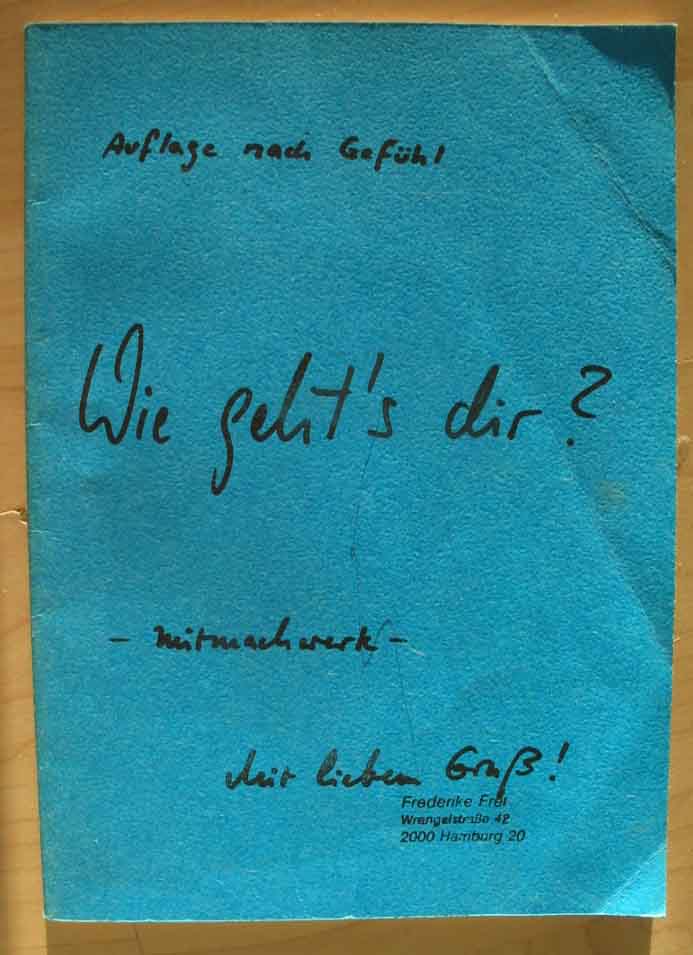 Auflage nach Gefühl
Wie geht's dir?
- Mitmachwerk -
Mit lieben Gruß!
Frederike Frei
Wrangelstraße 42
2000 Hamburg 20